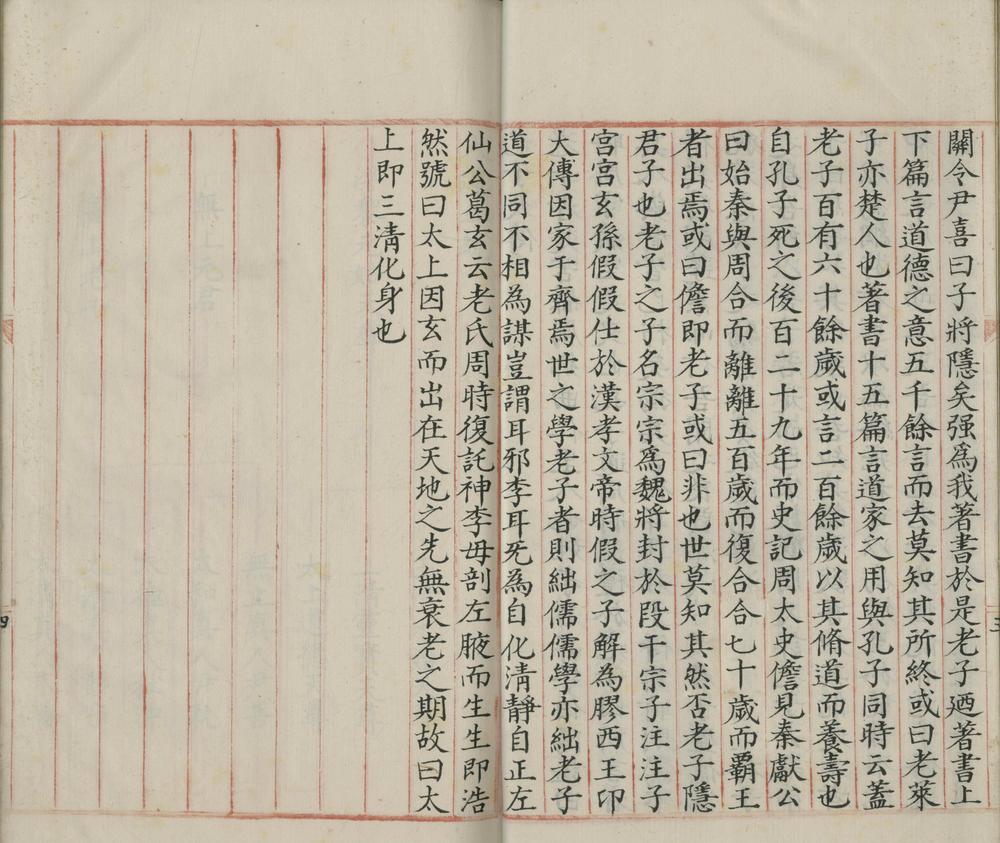 關令尹喜曰子將隱矣强爲我著書於是老子廼著書上
下篇言道德之意五千餘言而去莫知其所終或曰老萊
子亦楚人也著書十五篇言道家之用與孔子同時云蓋
老子百有六十餘歲或言二百餘歲以其脩道而養壽也
自孔子死之後百二十九年而史記周太史儋見秦獻公
曰始秦與周合而離離五百歲而復合合七十歲而霸王
者出焉或曰儋即老子或曰非也世莫知其然否老子隱
君子也老子之子名宗宗爲魏將封於段干宗子注注子
宮宮玄孫假假仕於漢孝文帝時假之子解為膠西王卬
大傅因家于齊焉世之學老子者則絀儒儒學亦絀老子
道不同不相為謀豈謂耳邪李耳死為自化清靜自正左
仙公葛玄云老氏周時復託神李母剖左腋而生生即浩
然號曰太上因玄而出在天地之先無衰老之期故曰太
上即三清化身也
三
四